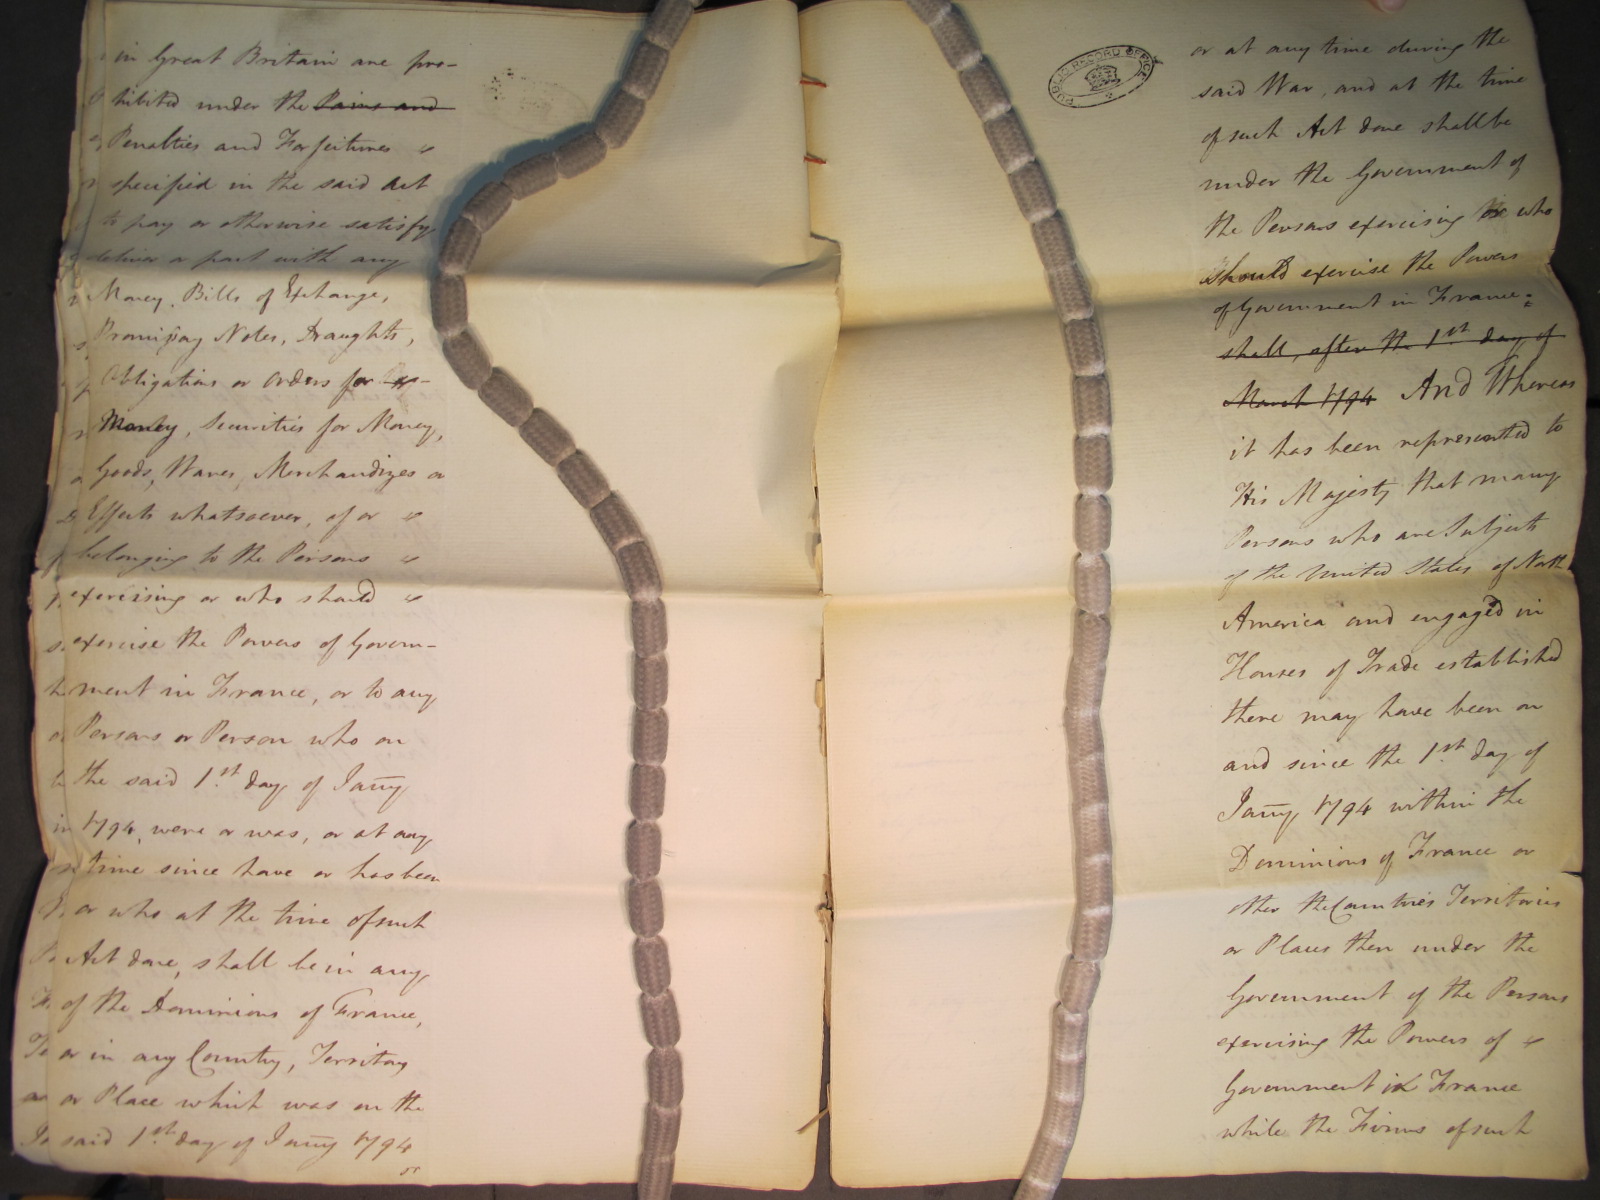 in Great Britain are pro-
hibited under the Pains and
Penalties and Forfeitures
specified in the said Act
to pay or otherwise satisfy
deliver or part with any
Money, Bills of Exchange,
Promissory Notes, Draughts,
Obligations or Orders for
Money, Securities for Money,
Goods, Wares, Merchandizes or
Effects whatsoever, of or
belonging to the Persons
exercising or who should
exercise the Powers of Govern-
ment in France, or to any
Persons or Person who on
the said 1st day of Jany
1794, were or was, or at any
time since have or has been
or who at the time of such
Act done, shall be in any
of the Dominions of France,
or in any Country, Territory
or Place which was on the
said 1st day of Jany 1794
or
PUBLIC RECORD OFFICE
or at any time during the
said War, and at the time
of such Act done shall be
under the Government of
the Persons exercising or who
should exercise the Powers
of Government in France:
shall, after the 1st day of
March 1794 And Whereas
it has been represented to
His Majesty that many
Persons who are Subjects
of the United States of North
America and engaged in
Houses of Trade established
there may have been on
and since the 1st day of
Jany 1794 within the
Dominions of France or
other the Countries Territories
or Places then under the
Government of the Persons
exercising the Powers of
Government in France
while the Firms of such